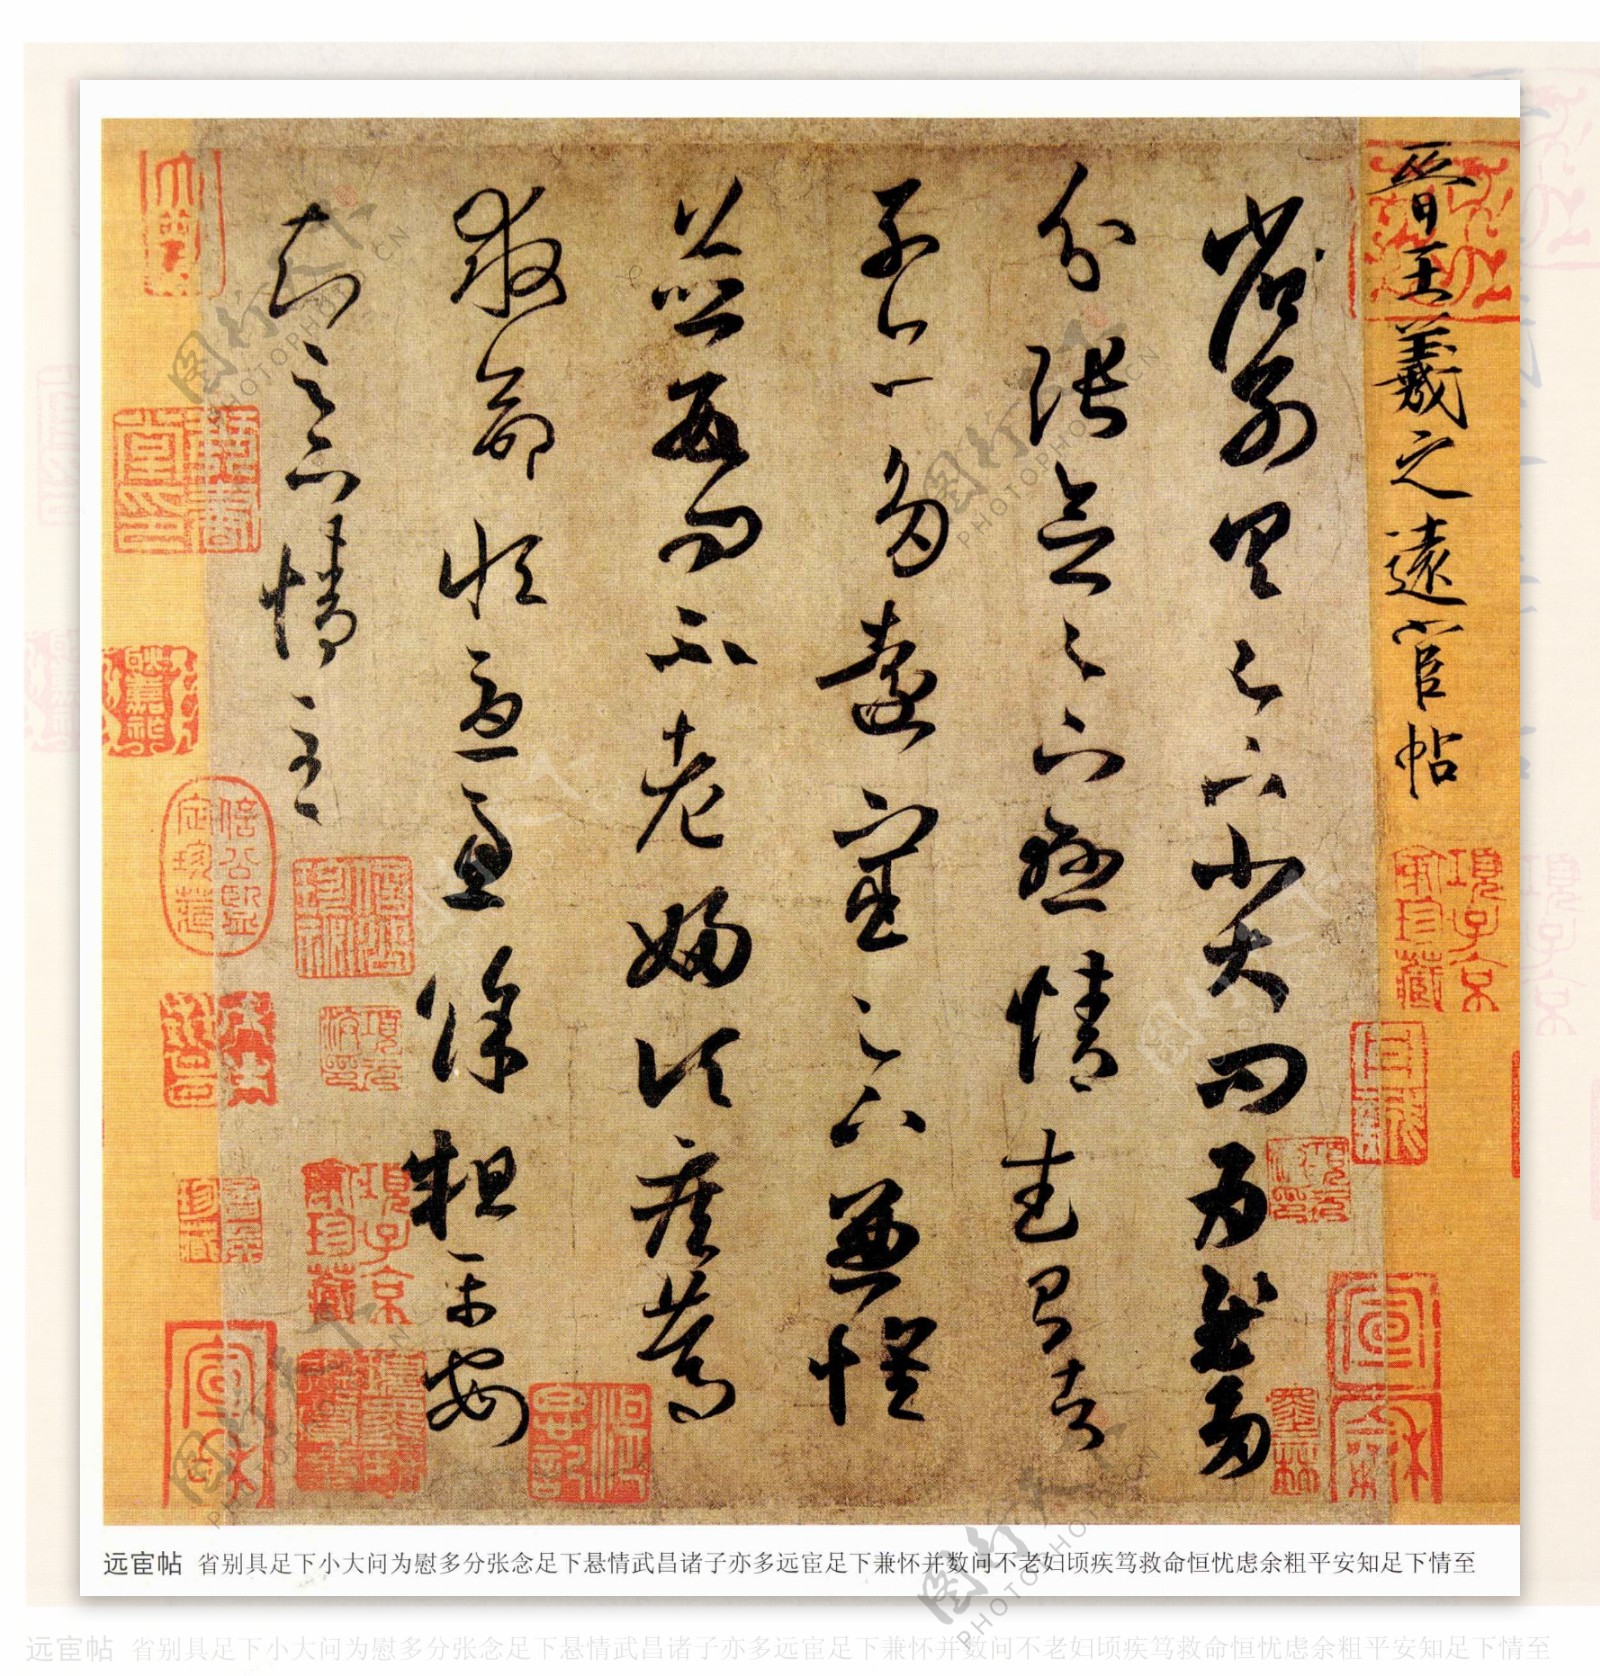 晉王羲之遠宦帖
省別具足下小大問為慰多
分張念足下懸情武昌諸
子亦多遠宦足下兼懷
並數問不老婦頃疾篤
救命恒憂慮餘粗平安
知足下情至
項子京家珍藏
宣和
墨林
项子京家珍藏
远宦帖 省别具足下小大问为慰多分张念足下悬情武昌诸子亦多远宦足下兼怀并数问不老妇顷疾笃救命恒忧虑余粗平安知足下情至
远宦帖 省别具足下小大问为慰多分张念足下悬情武昌诸子亦多远宦足下兼怀并数问不老妇顷疾笃救命恒忧虑余粗平安知足下情至
图行天下
PHOTOPHOTO.CN